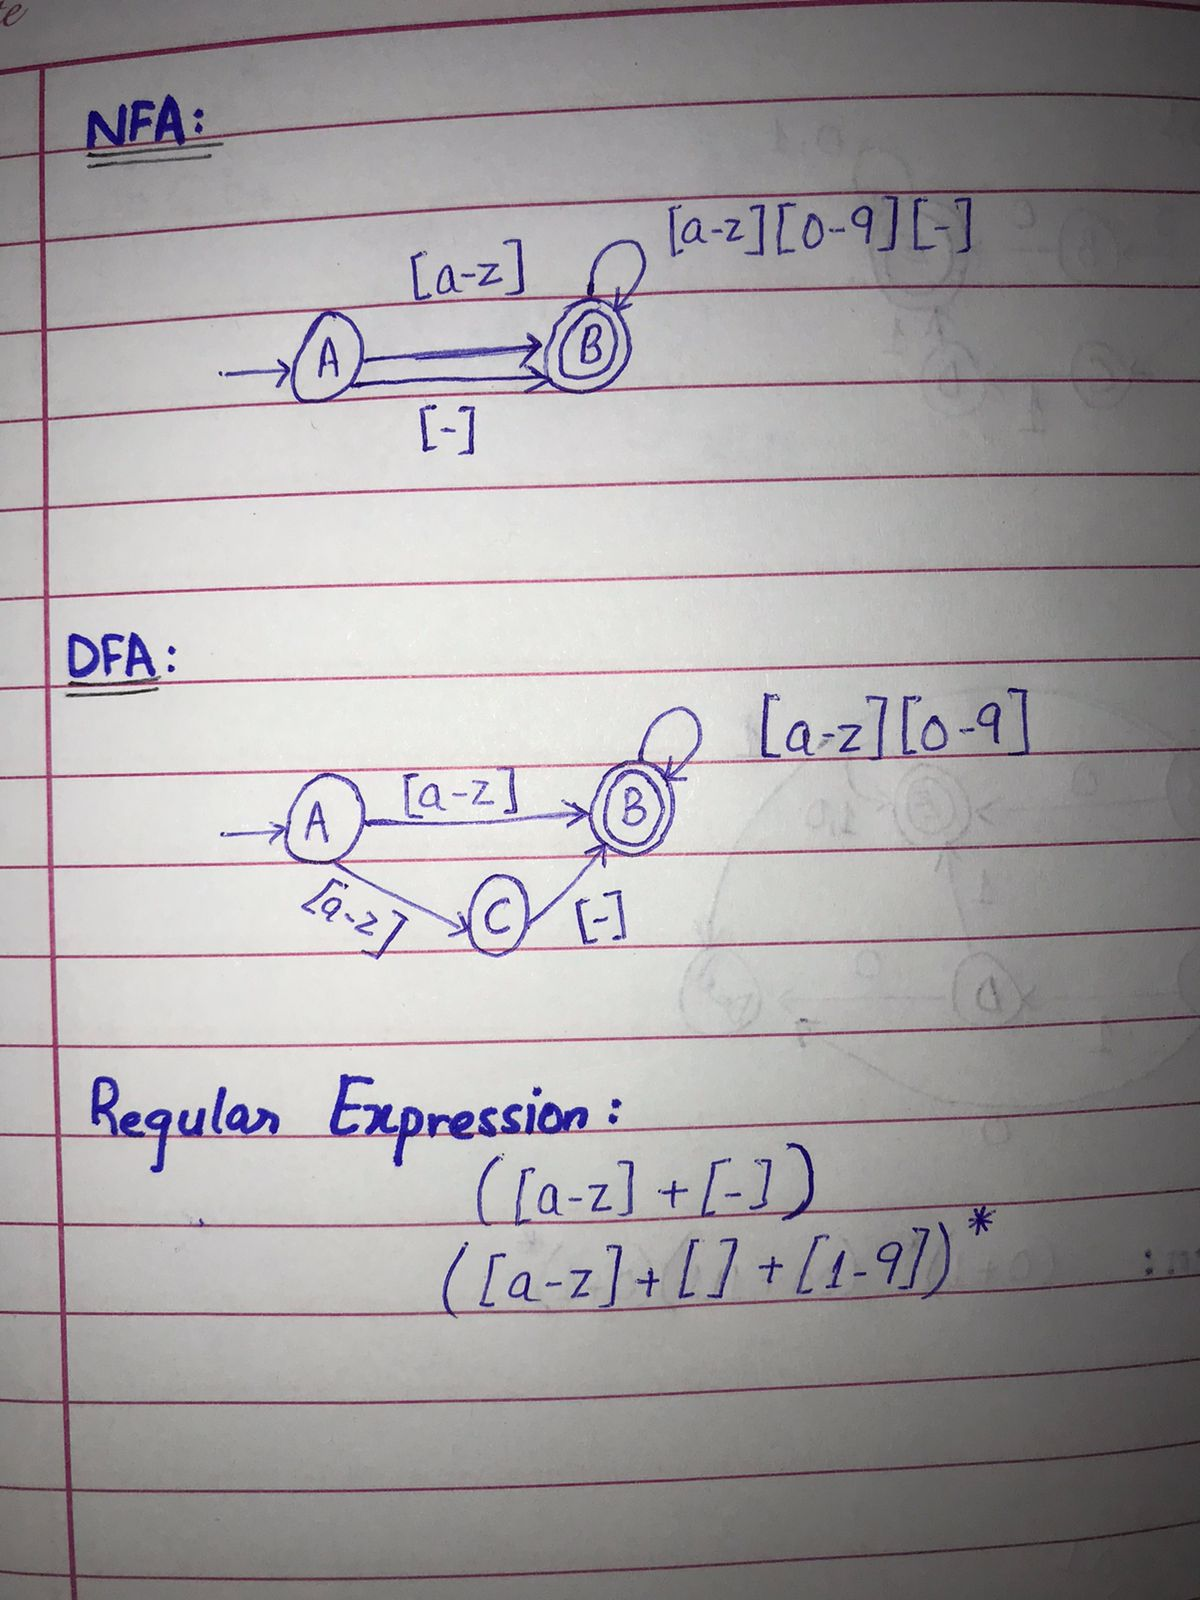 te
NFA:
[a-z][0-9][-]
[a-z]
A
B
[-]
DFA:
[a-z][0-9]
[a-z]
A
B
[a-z]
C
[-]
Regular Expression:
([a-z] + [-])
([a-z] + [] + [1-9])*